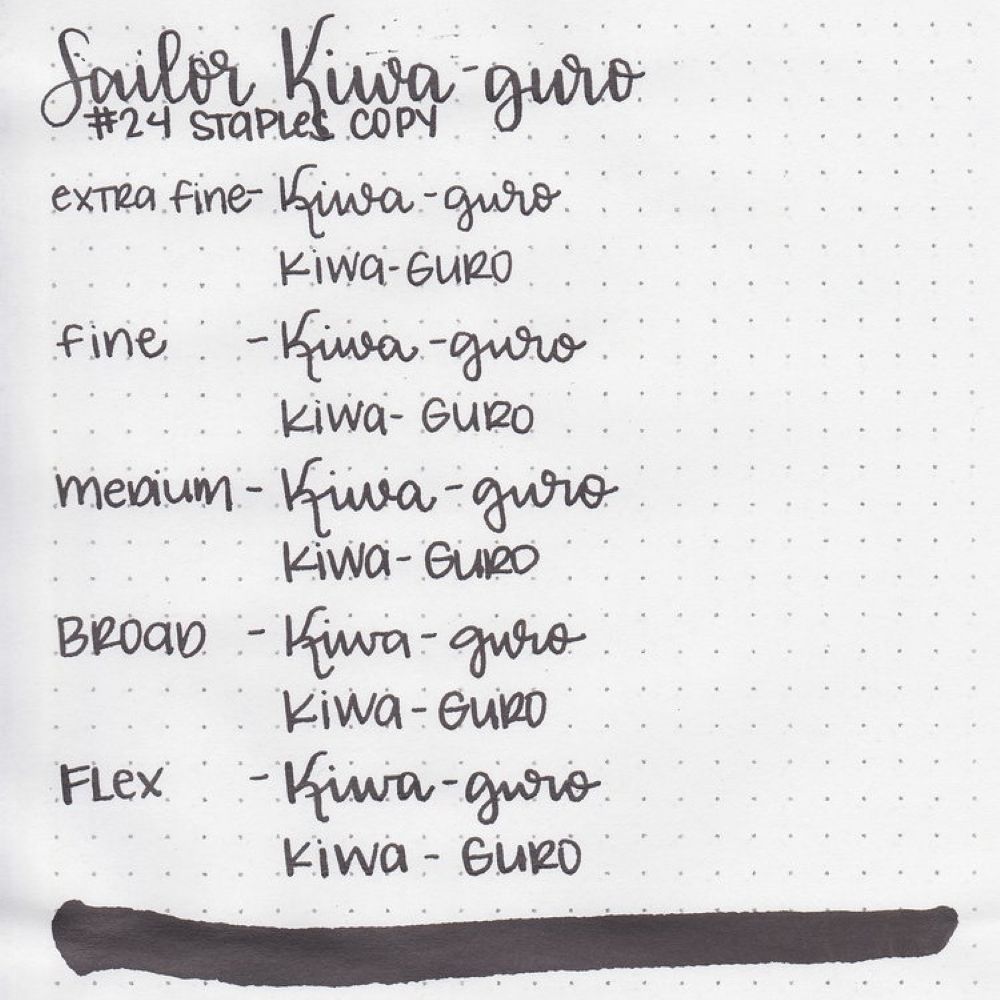 Sailor Kiwa-guro
#24 STAPLES COPY
EXTRA FINE- Kiwa-guro
KiWA-GURO
FINE - Kiwa-guro
KiWA- GURO
MEDIUM - Kiwa-guro
KiWA-GURO
BROAD - Kiwa-guro
KiWA-GURO
FLEX - Kiwa-guro
KiWA - GURO